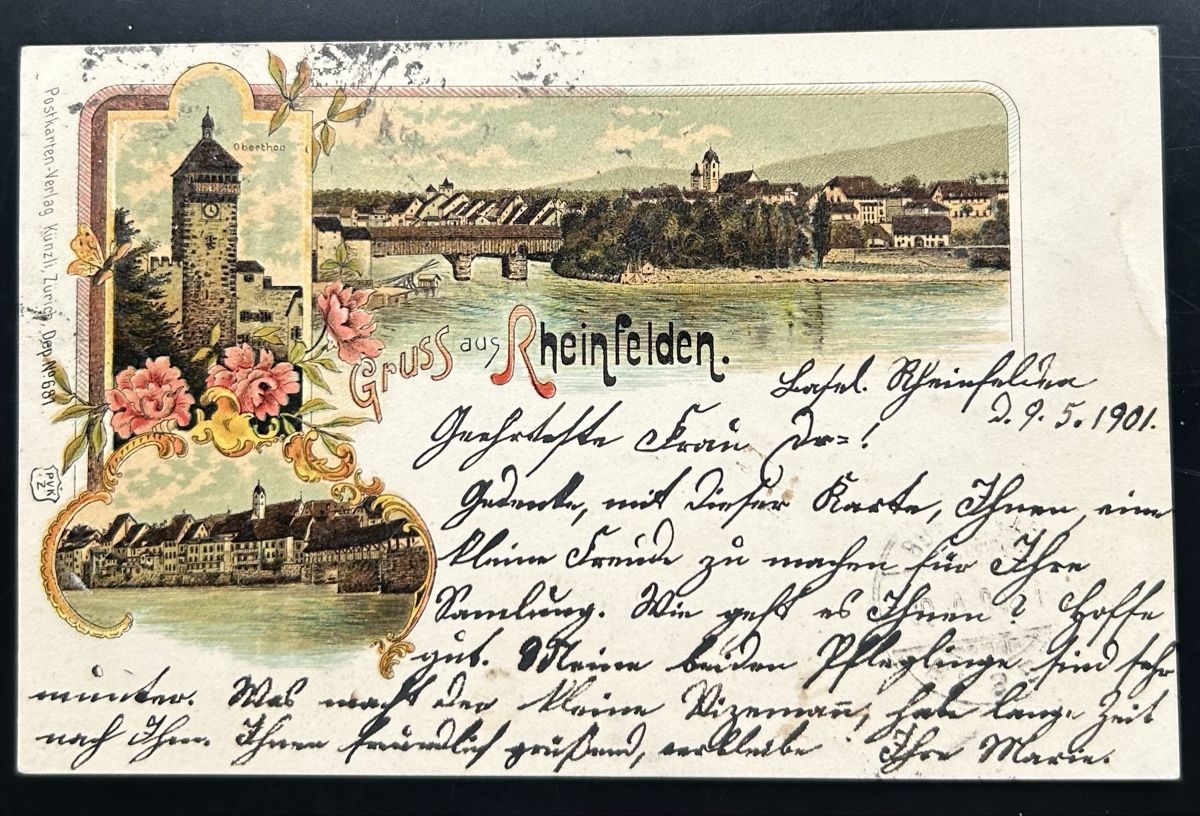 Postkarten-Verlag Künzli, Zürich, Dep. No 681.
PVK
Z
Oberthor
Gruss aus Rheinfelden.
Basel. Rheinfelden
d. 9. 5. 1901.
Geehrteste Frau Dr=!
Gedenke, mit dieser Karte, Ihnen eine
kleine Freude zu machen für Ihre
Samlung. Wie geht es Ihnen? Hoffe
gut. Meine beiden Pfleglinge sind sehr
munter. Was macht der kleine Vizemann, hab lange Zeit
nach Ihm. Ihnen freundlich grüßend, verbleibe Ihre Marie.